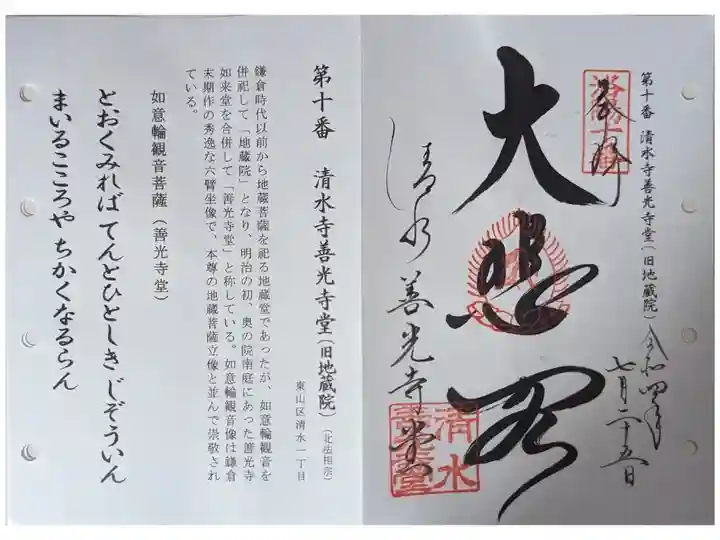 第十番 清水寺善光寺堂(旧地蔵院)
奉拝
大悲閣
清水善光寺堂
令和四年
七月二十五日
清水
善光寺堂
第十番 清水寺善光寺堂(旧地蔵院)(北法相宗)
東山区清水一丁目
鎌倉時代以前から地蔵菩薩を祀る地蔵堂であったが、如意輪観音を
併祀して「地蔵院」となり、明治の初、奥の院南庭にあった善光寺
如来堂を合併して「善光寺堂」と称している。如意輪観音像は鎌倉
末期作の秀逸な六臂坐像で、本尊の地蔵菩薩立像と並んで崇敬され
ている。
如意輪観音菩薩(善光寺堂)
とおくみれば てんとひとしき じぞういん
まいるこころや ちかくなるらん